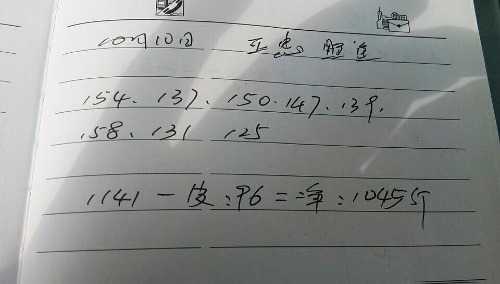 10月10日
154. 137. 150. 147. 139.
158. 131 125
1141 - 皮:96 = 净:1045斤